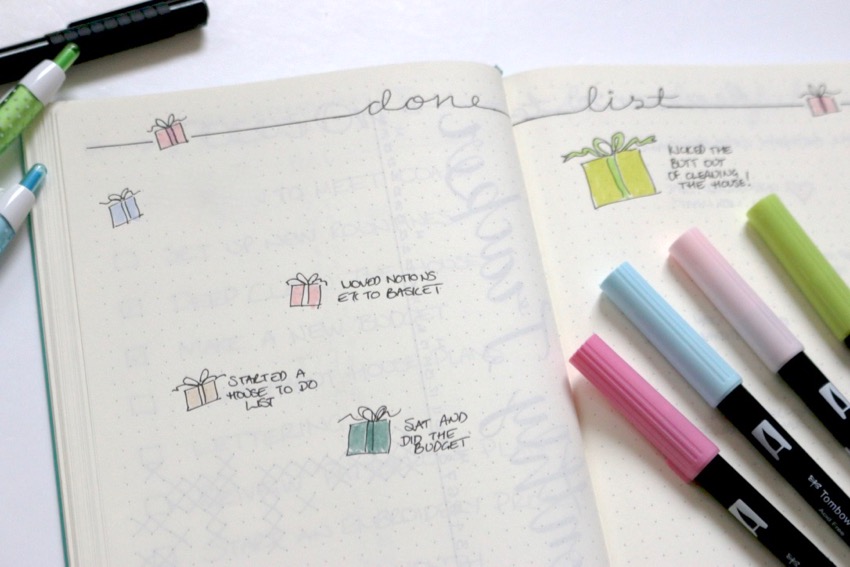 done list
MOVED NOTIONS
ETC TO BASKET
STARTED A
HOUSE TO DO
LIST
SAT AND
DID THE
BUDGET
KICKED THE
BUTT OUT
OF CLEANING
THE HOUSE!
Tombow